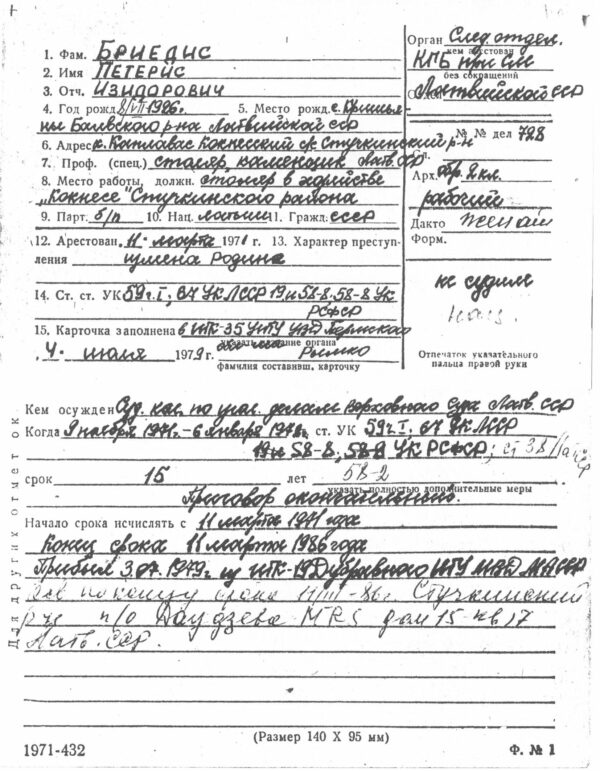 1. Фам. БРИЕДИС
2. Имя ПЕТЕРИС
3. Отч. ИЗИДОРОВИЧ
4. Год рожд 8/VII 1926. 5. Место рожд.
ны Балвского р-на Латвийской ССР
6. Адрес Кокнесский с/с Стучкинский р-н
7. Проф. (спец.) столяр каменщик Латв. ССР
8. Место работы, должн. столяр в хозяйстве
"Кокнесе" Стучкинского района
9. Парт. б/п 10. Нац. латыш 11. Гражд. СССР
12. Арестован 11 марта 1971 г. 13. Характер преступ-
ления измена Родине
14. Ст. ст. УК 59 ч. I; 67 УК ЛССР 19 и 58-8, 58-8 УК
РСФСР
15. Карточка заполнена в ИТК-35 УИТУ УВД Пермского
указать название органа
4 июля 1979 г. Рымко
фамилия составивш. карточку
Орган След. отдел.
кем арестован
КГБ при СМ
без сокращений
Латвийской ССР
№№ дел 728
Арх. обр. 2 кл.
рабочий
Дакто женат
Форм.
не судим
Отпечаток указательного
пальца правой руки
Для других отметок
Кем осужден Суд. кол. по угол. делам Верховного Суда Латв. ССР
Когда 9 ноября 1971.-6 января 1972г. ст. УК 59 ч I. 67 УК ЛССР
19 и 58-8, 58-8 УК РСФСР;
срок 15 лет 58-2
указать полностью дополнительные меры
Приговор окончательный.
Начало срока исчислять с 11 марта 1971 года
Конец срока 11 марта 1986 года
Прибыл 3.07.1979г из ИТК-19 Дубравного ИТУ МВД МАССР
по концу срока 11/III-86г. Стучкинский
п/о Даудзева MRS дом 15 кв 17
Латв. ССР.
(Размер 140 X 95 мм)
1971-432 Ф. № 1